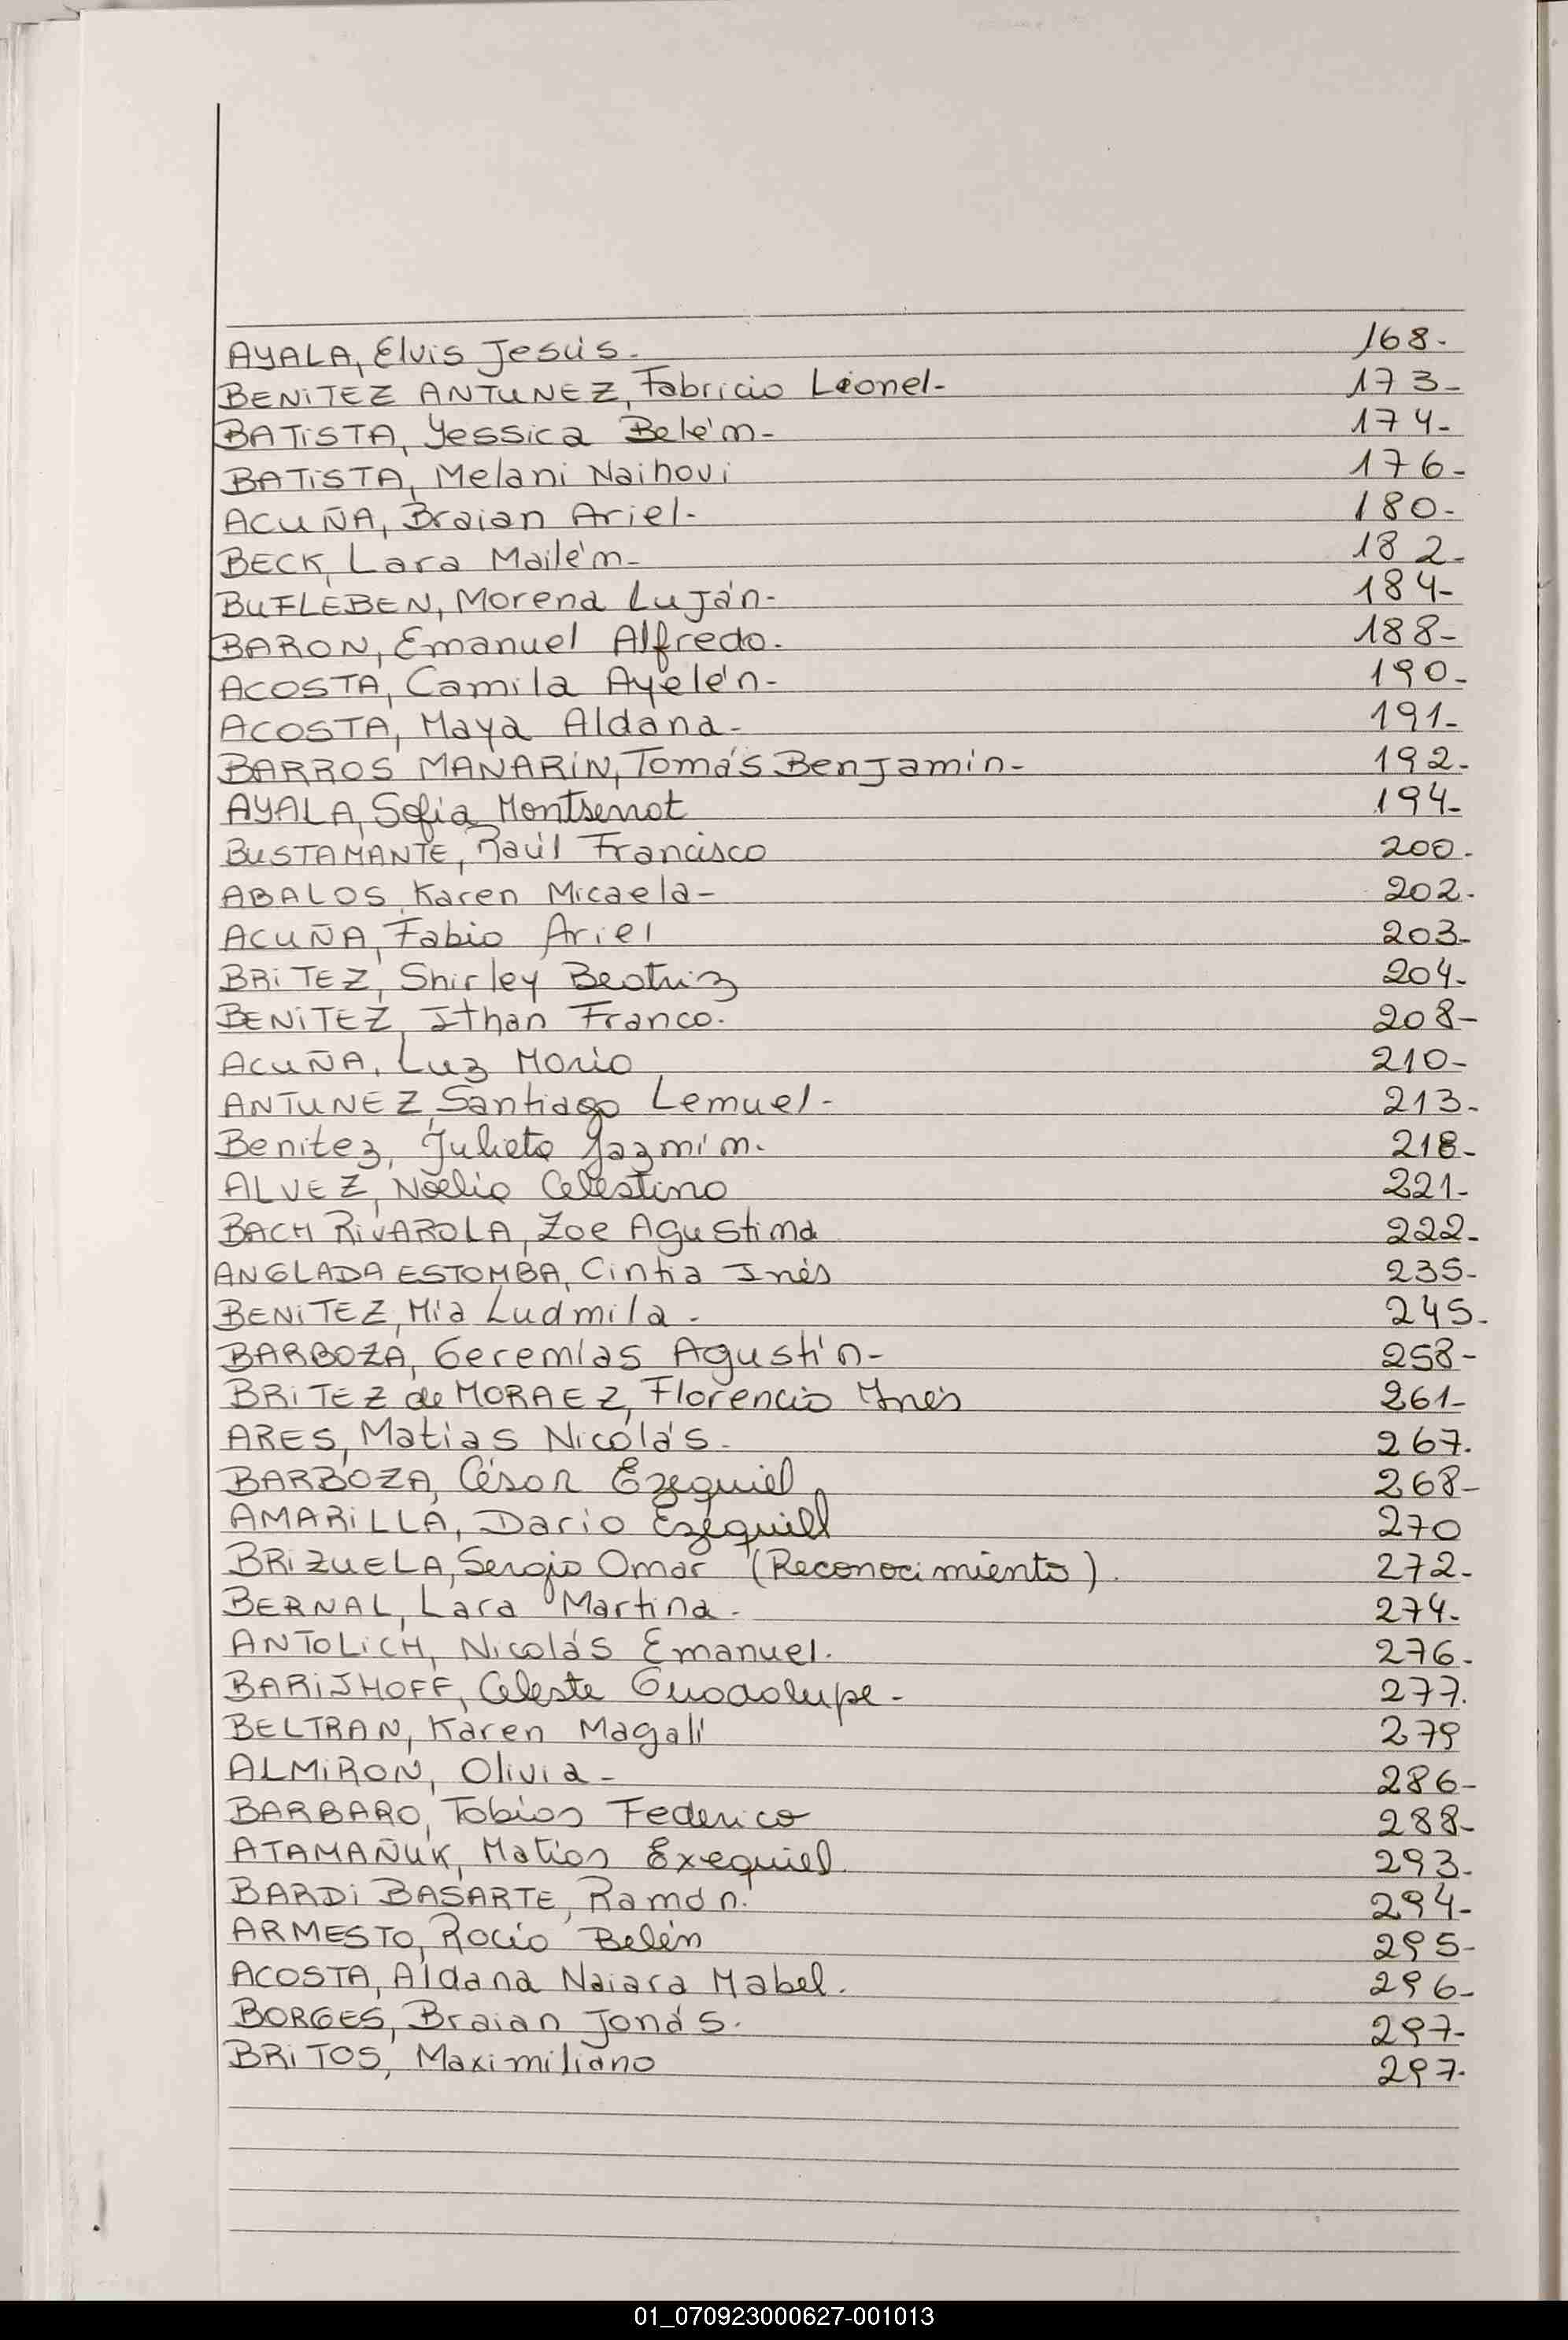 AYALA, Elvis Jesús. 168-
BENITEZ ANTUNEZ, Fabricio Leonel- 173-
BATISTA, Yessica Belém- 174-
BATISTA, Melani Naihovi 176-
ACUÑA, Braian Ariel- 180-
BECK, Lara Mailém- 182-
BUFLEBEN, Morena Luján- 184-
BARON, Emanuel Alfredo. 188-
ACOSTA, Camila Ayelén- 190-
ACOSTA, Maya Aldana- 191-
BARROS MANARIN, Tomás Benjamín- 192-
AYALA, Sofia Montserrat 194-
BUSTAMANTE, Raúl Francisco 200-
ABALOS, Karen Micaela- 202-
ACUÑA, Fabio Ariel 203-
BRITEZ, Shirley Beatriz 204-
BENITEZ, Ithan Franco. 208-
ACUÑA, Luz Maria 210-
ANTUNEZ, Santiago Lemuel- 213-
Benitez, Julieta Jazmín. 218-
ALVEZ, Noelia Celestina 221-
BACH RIVAROLA, Zoe Agustina 222-
ANGLADA ESTOMBA, Cintia Inés 235-
BENITEZ, Mía Ludmila. 245-
BARBOZA, Geremías Agustín- 258-
BRITEZ de MORAEZ, Florencia Ynés 261-
ARES, Matias Nicolás. 267.
BARBOZA, César Ezequiel 268-
AMARILLA, Dario Ezequiel 270
BRIZUELA, Sergio Omar (Reconocimiento). 272-
BERNAL, Lara Martina. 274-
ANTOLICH, Nicolás Emanuel. 276-
BARIJHOFF, Celeste Guadalupe- 277.
BELTRAN, Karen Magalí 279
ALMIRON, Olivia- 286-
BARBARO, Tobias Federico 288-
ATAMAÑUK, Matias Exequiel 293-
BARDI BASARTE, Ramón. 294-
ARMESTO, Rocio Belén 295-
ACOSTA, Aldana Naiara Mabel. 296-
BORGES, Braian Jonás. 297-
BRITOS, Maximiliano 297-
01_070923000627-001013